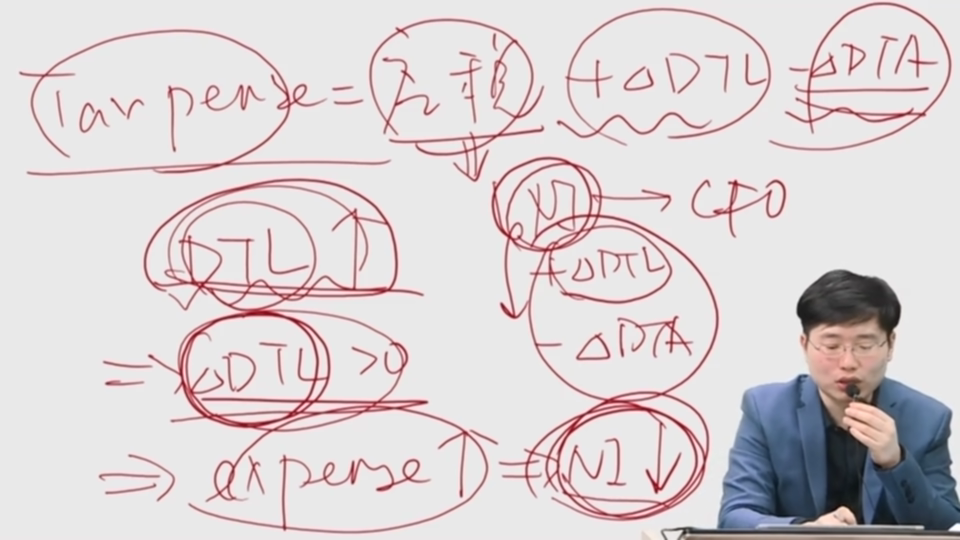 Taxpense = + ΔDTL - ΔDTA
NI → CFO
DTL ↑
+ ΔDTL
- ΔDTA
⇒ ΔDTL >0
⇒ expense ↑ ⇒ NI ↓